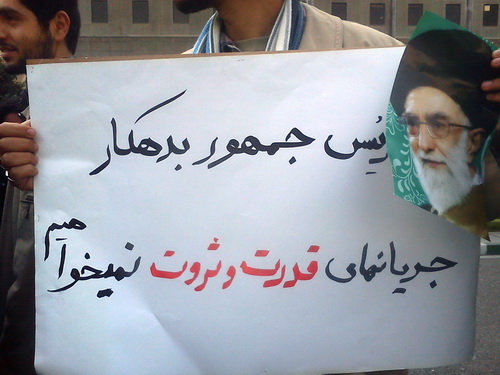 رئیس جمهور بدهکار
جریانهای قدرت و ثروت نمیخواهیم